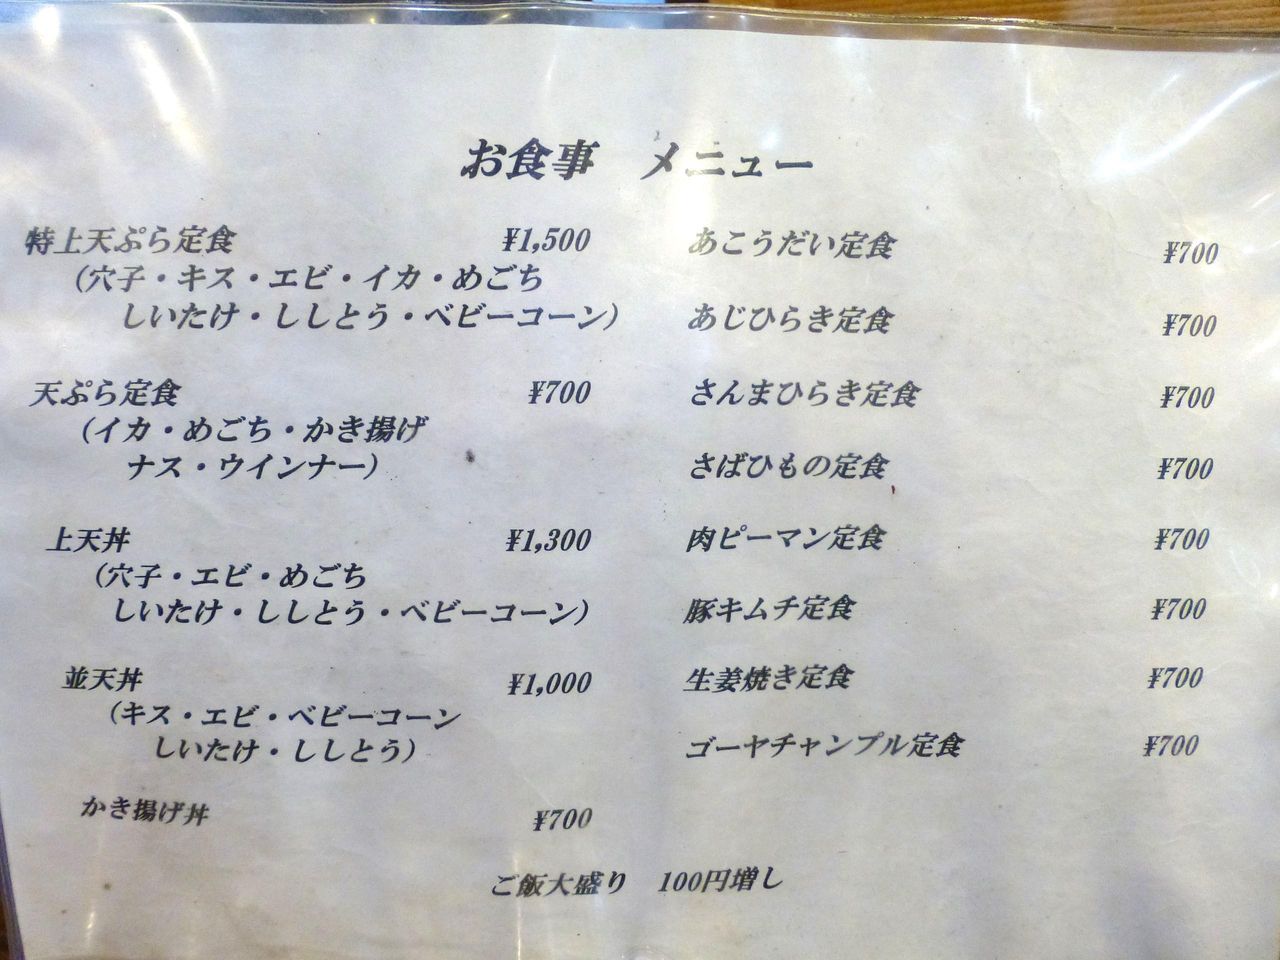 お食事　メニュー
特上天ぷら定食 ¥1,500
（穴子・キス・エビ・イカ・めごち
しいたけ・ししとう・ベビーコーン）
天ぷら定食 ¥700
（イカ・めごち・かき揚げ
ナス・ウインナー）
上天丼 ¥1,300
（穴子・エビ・めごち
しいたけ・ししとう・ベビーコーン）
並天丼 ¥1,000
（キス・エビ・ベビーコーン
しいたけ・ししとう）
かき揚げ丼 ¥700
あこうだい定食 ¥700
あじひらき定食 ¥700
さんまひらき定食 ¥700
さばひもの定食 ¥700
肉ピーマン定食 ¥700
豚キムチ定食 ¥700
生姜焼き定食 ¥700
ゴーヤチャンプル定食 ¥700
ご飯大盛り　100円増し